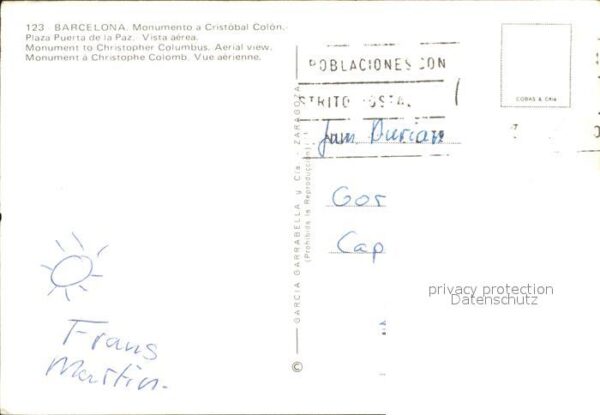 123 BARCELONA. Monumento a Cristóbal Colón.
Plaza Puerta de la Paz. Vista aérea.
Monument to Christopher Columbus. Aerial view.
Monument à Christophe Colomb. Vue aérienne.
POBLACIONES CON
STRITO POSTAL
COBAS & Cría
GARCIA GARRABELLA y Cía. - ZARAGOZA
(Prohibida la Reproducción)
©
Jan Durian
Gor
Cap
privacy protection
Datenschutz
Frans
Martin.